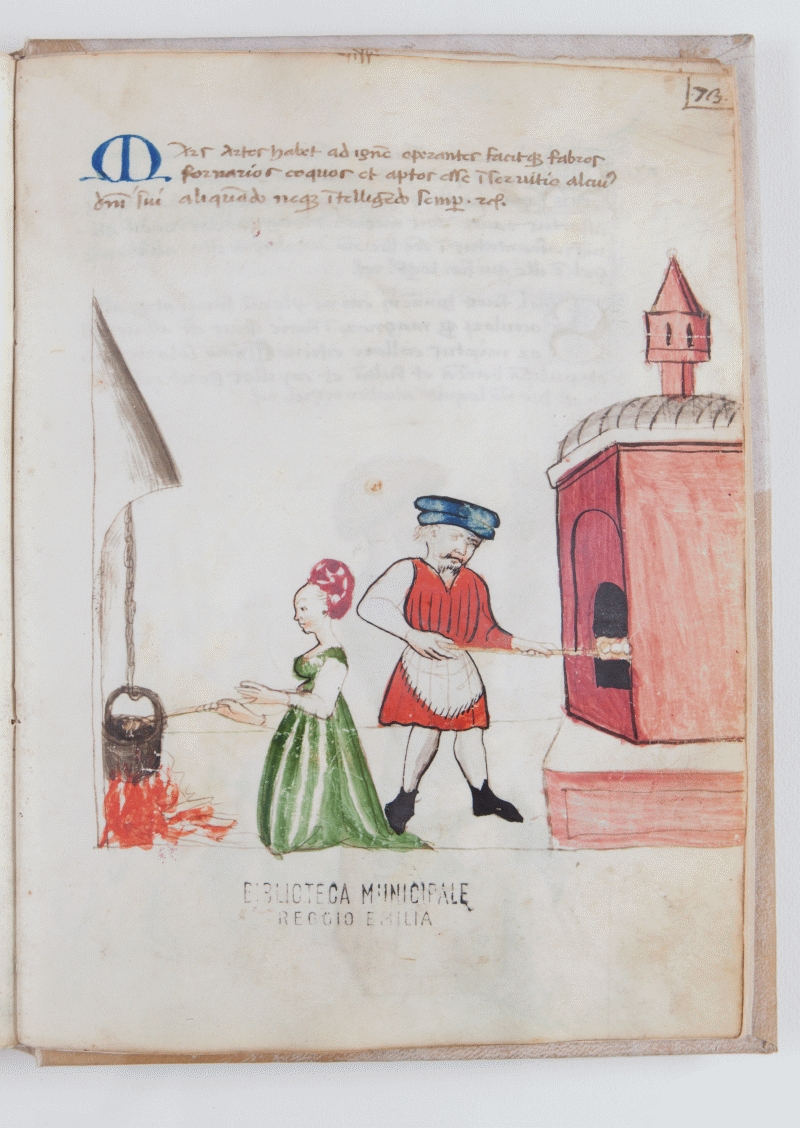 73
Mars Artes habet ad ignē operantes facitqꝫ fabros
fornarios coquos et aptos esse ī servitio alcuiꝰ
dñi sui aliquādo neqꝫ ītelligēdo semp. ref.
BIBLIOTECA MUNICIPALE
REGGIO EMILIA